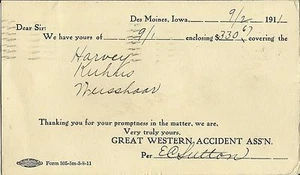 Des Moines, Iowa, 9/2 1911
Dear Sir:
We have yours of 9/1 enclosing $330 67 covering the
Harvey
Kuhlis
Meisshaar
Thanking you for your promptness in the matter, we are,
Very truly yours,
GREAT WESTERN ACCIDENT ASS'N.
Per E C Sutton
Form 105-5m-3-8-11